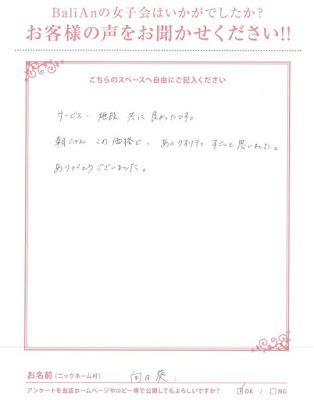 BaliAnの女子会はいかがでしたか?
お客様の声をお聞かせください!!
こちらのスペースへ自由にご記入ください
サービス・施設 共に良かったです。
朝ごはん この価格で、あのクオリティ すごいと思いました。
ありがとうございました。
お名前(ニックネーム可) 向日葵
アンケートを当店ホームページやロビー等で公開してもよろしいですか? ☑OK / □NG